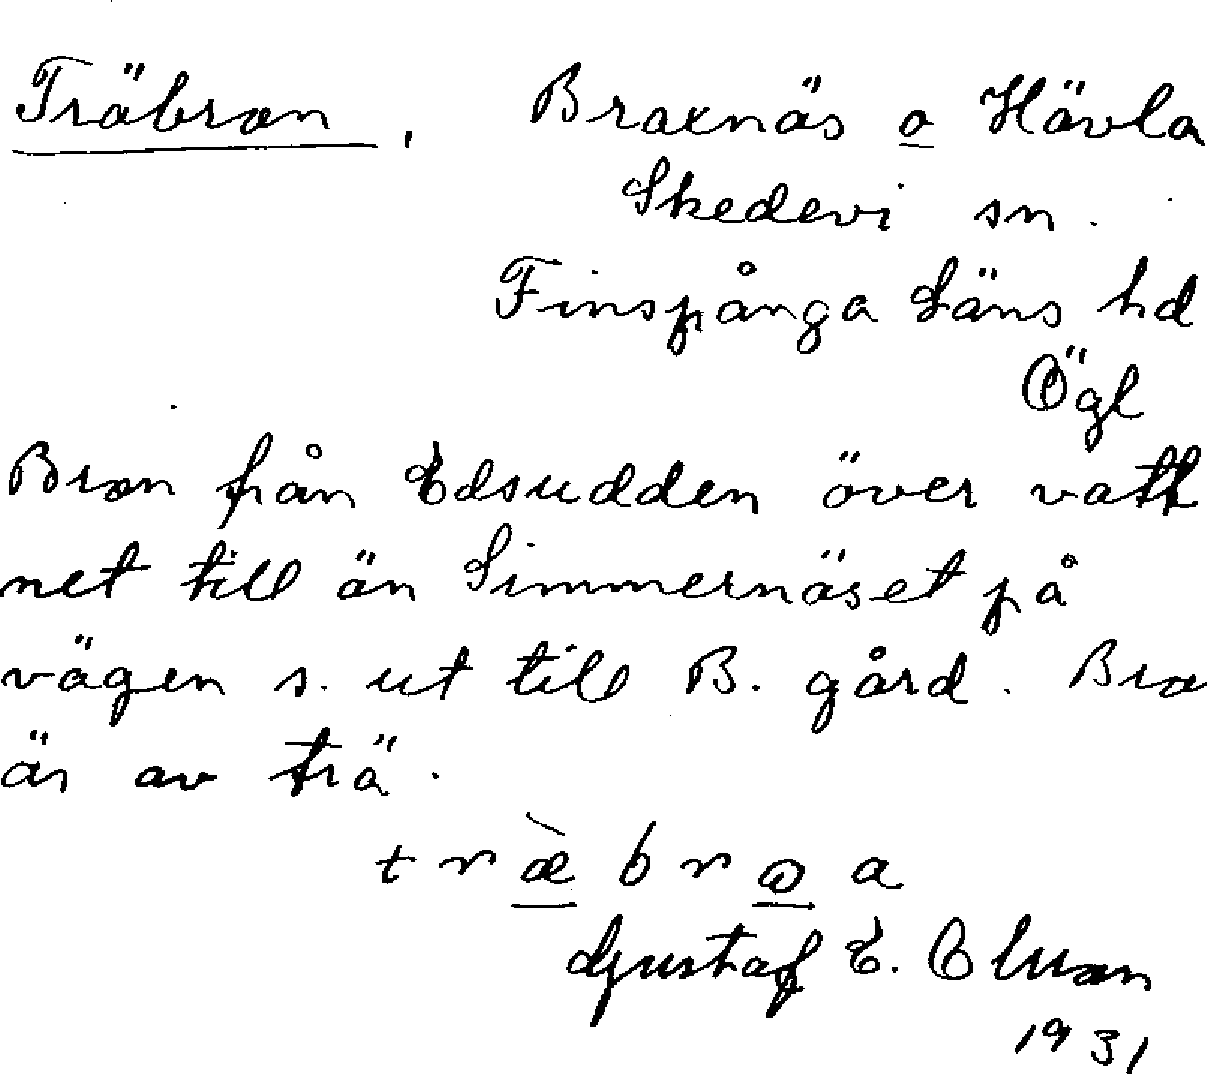 Träbron, Braxnäs o Hävla
Skedevi sn.
Finspånga läns hd
Ögl
Bron från Edsudden över vatt
net till än Simmernäset på
vägen s. ut till B. gård. Bro
är av trä.
træ̀brωa
Gustaf E.
1931